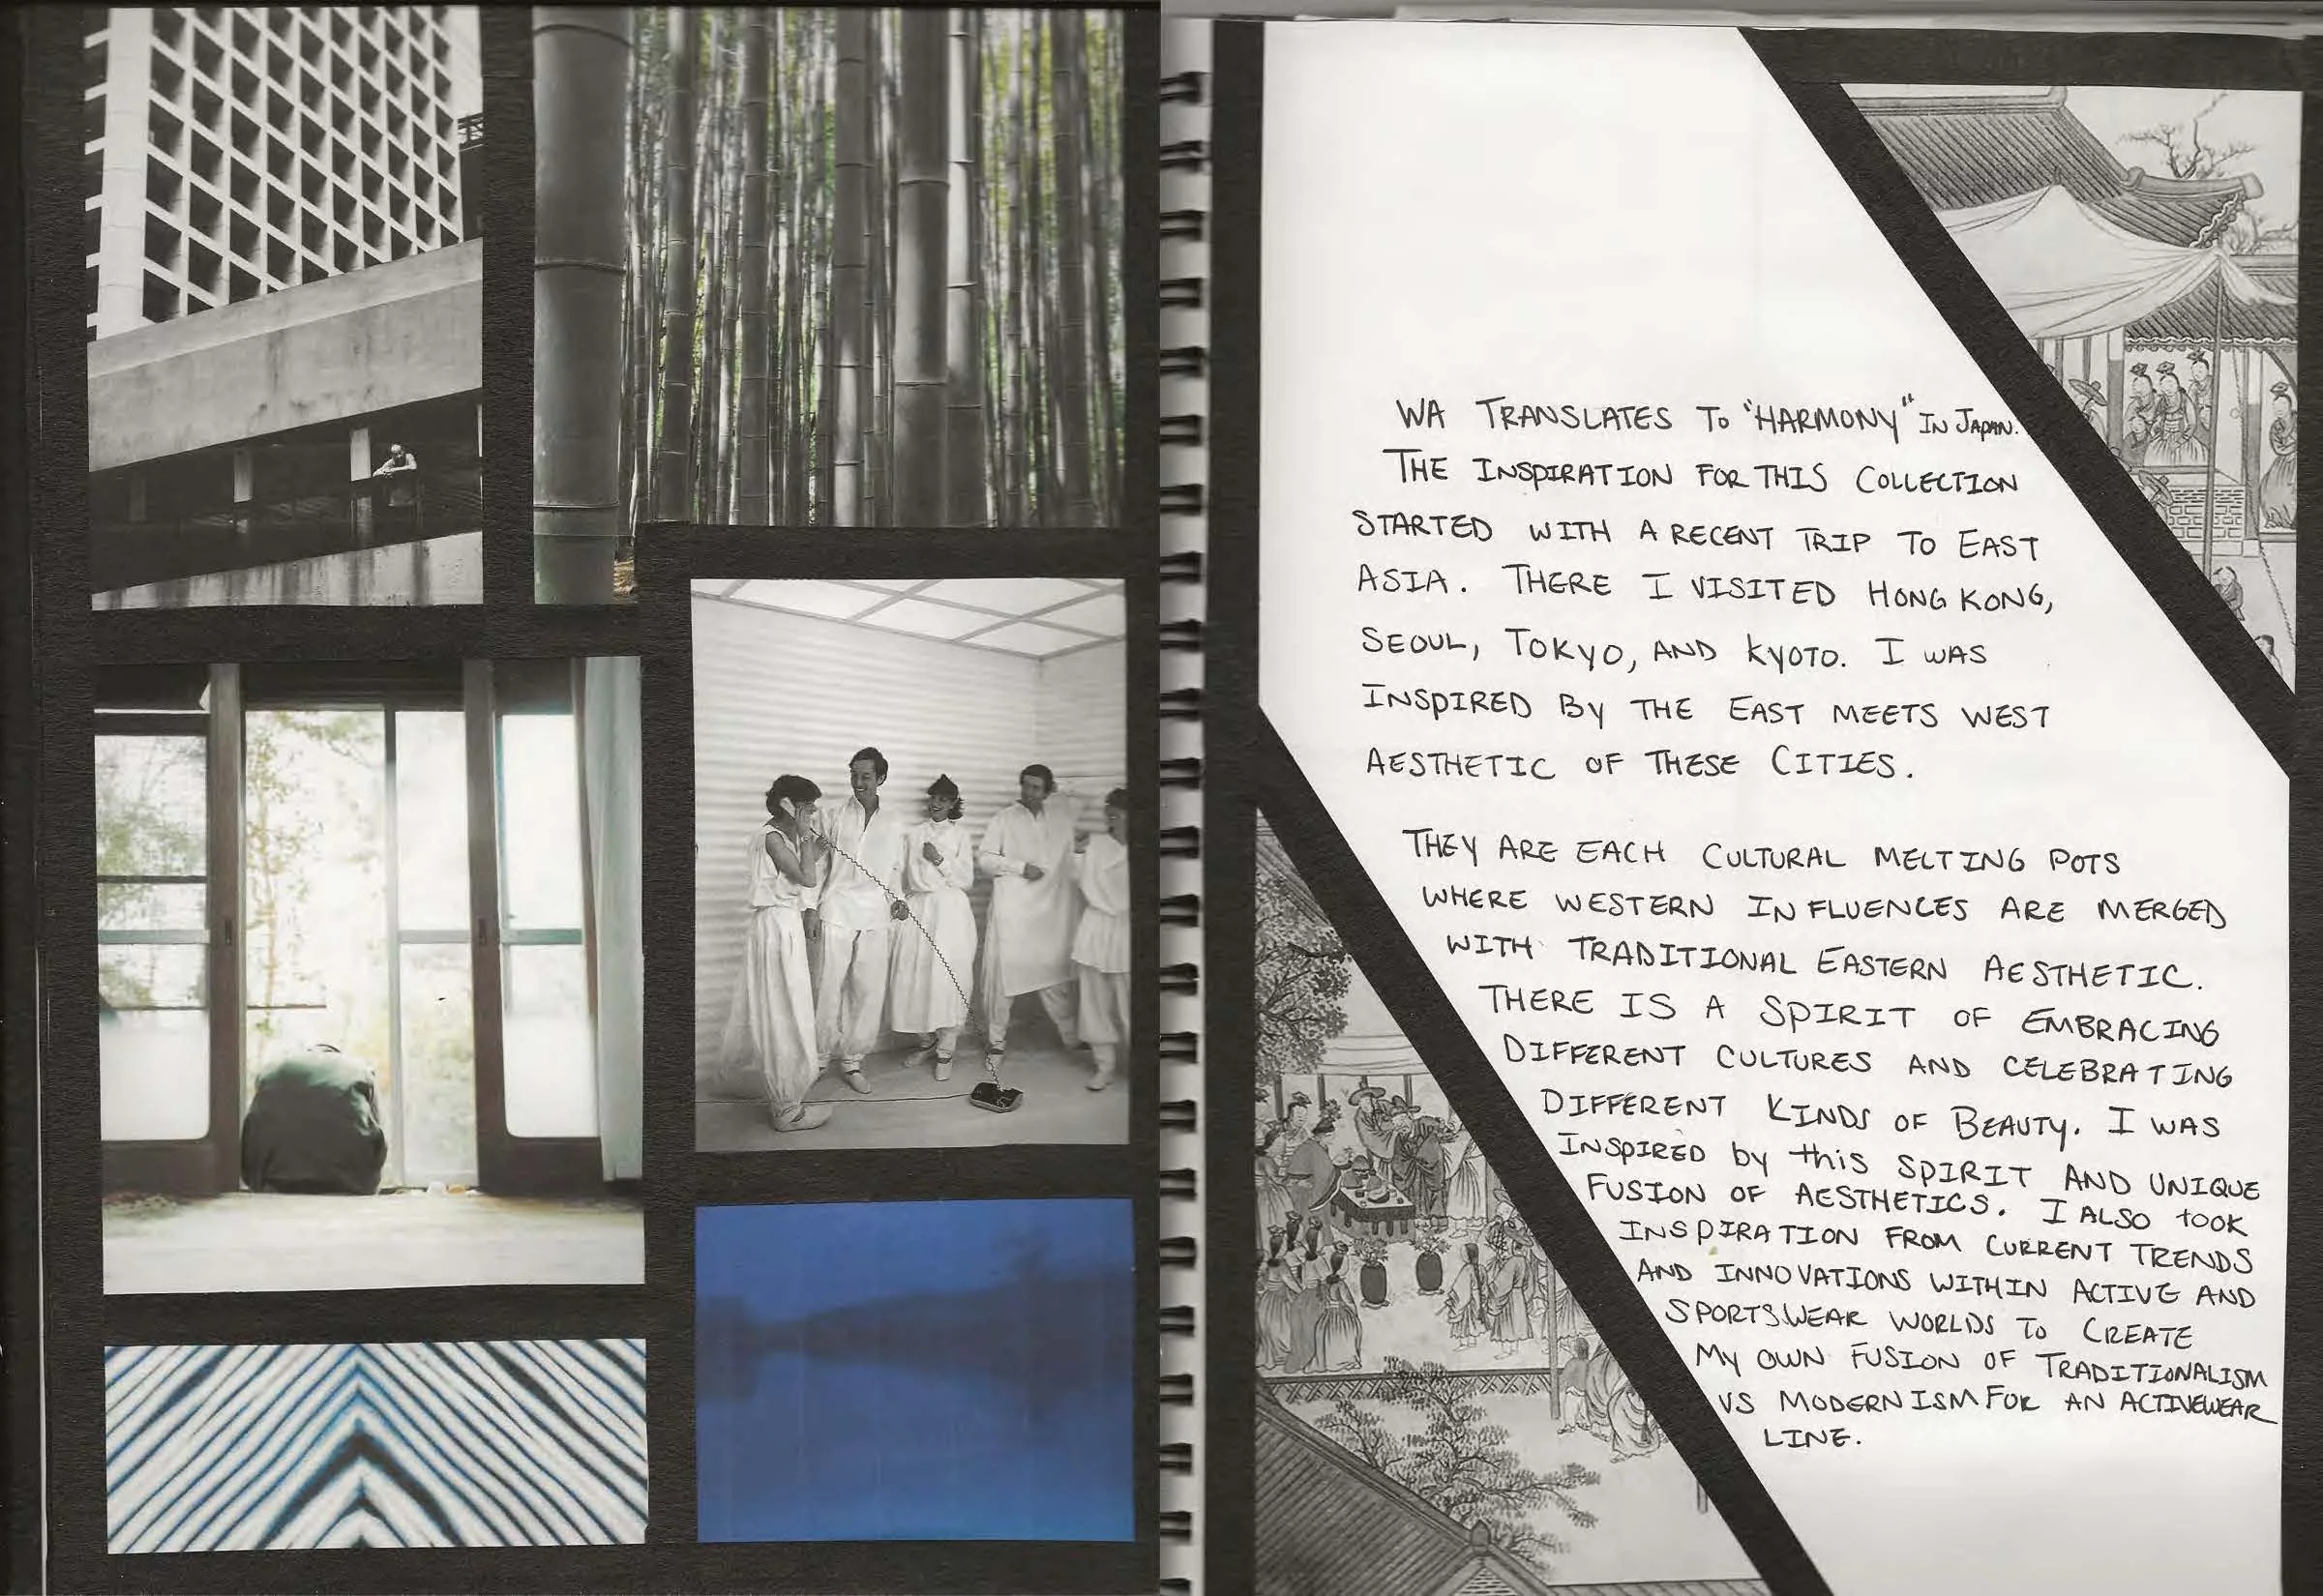 WA TRANSLATES TO "HARMONY" IN JAPAN.
THE INSPIRATION FOR THIS COLLECTION
STARTED WITH A RECENT TRIP TO EAST
ASIA. THERE I VISITED HONG KONG,
SEOUL, TOKYO, AND KYOTO. I WAS
INSPIRED BY THE EAST MEETS WEST
AESTHETIC OF THESE CITIES.
THEY ARE EACH CULTURAL MELTING POTS
WHERE WESTERN INFLUENCES ARE MERGED
WITH TRADITIONAL EASTERN AESTHETIC.
THERE IS A SPIRIT OF EMBRACING
DIFFERENT CULTURES AND CELEBRATING
DIFFERENT KINDS OF BEAUTY. I WAS
INSPIRED by this SPIRIT AND UNIQUE
FUSION OF AESTHETICS. I ALSO TOOK
INSPIRATION FROM CURRENT TRENDS
AND INNOVATIONS WITHIN ACTIVE AND
SPORTSWEAR WORLDS TO CREATE
MY OWN FUSION OF TRADITIONALISM
VS MODERNISM FOR AN ACTIVEWEAR
LINE.